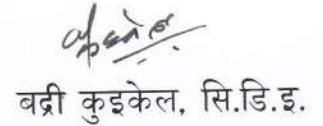 बद्री कुइकेल, सि.डि.इ.